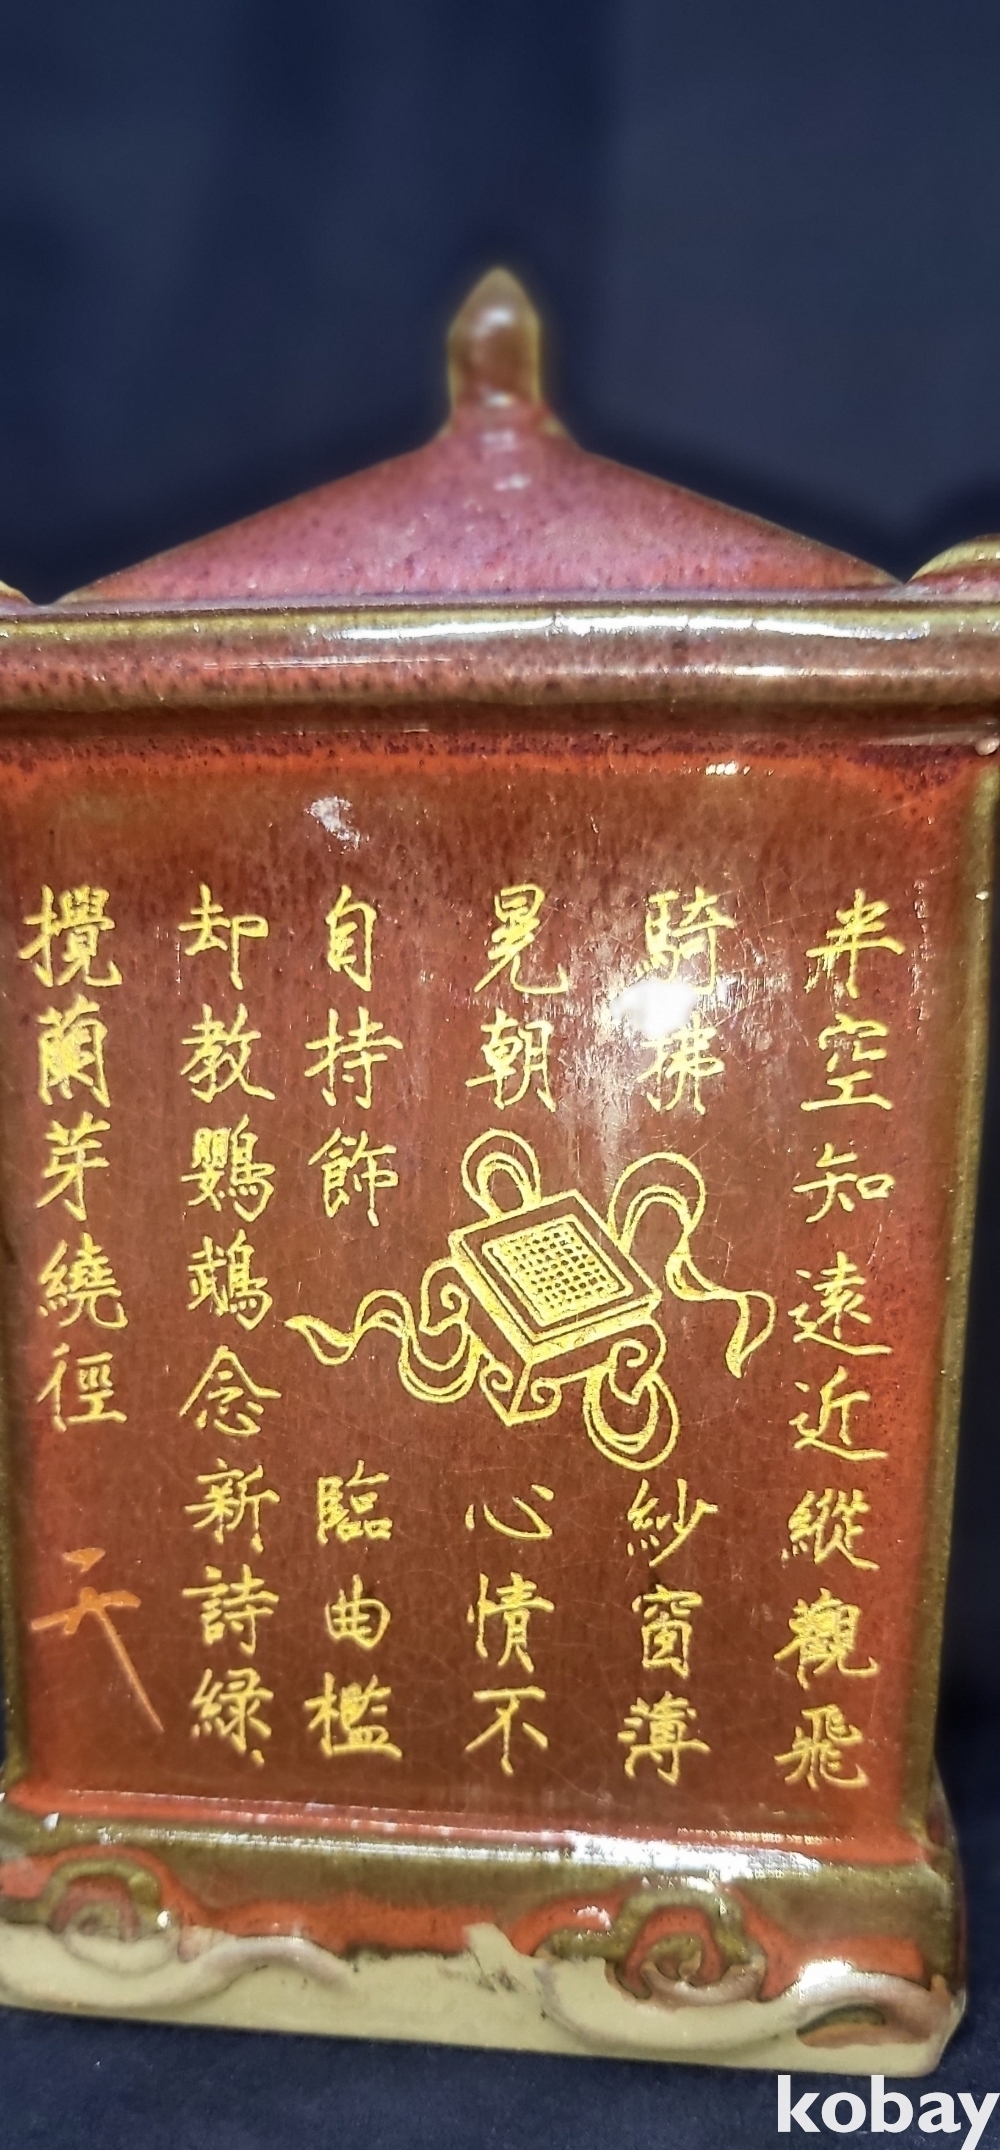 半空知遠近縱觀飛
騎拂紗窗薄
晃朝心情不
自持飾臨曲檻
却教鸚鵡念新詩綠
攪蘭芽繞徑
kobay